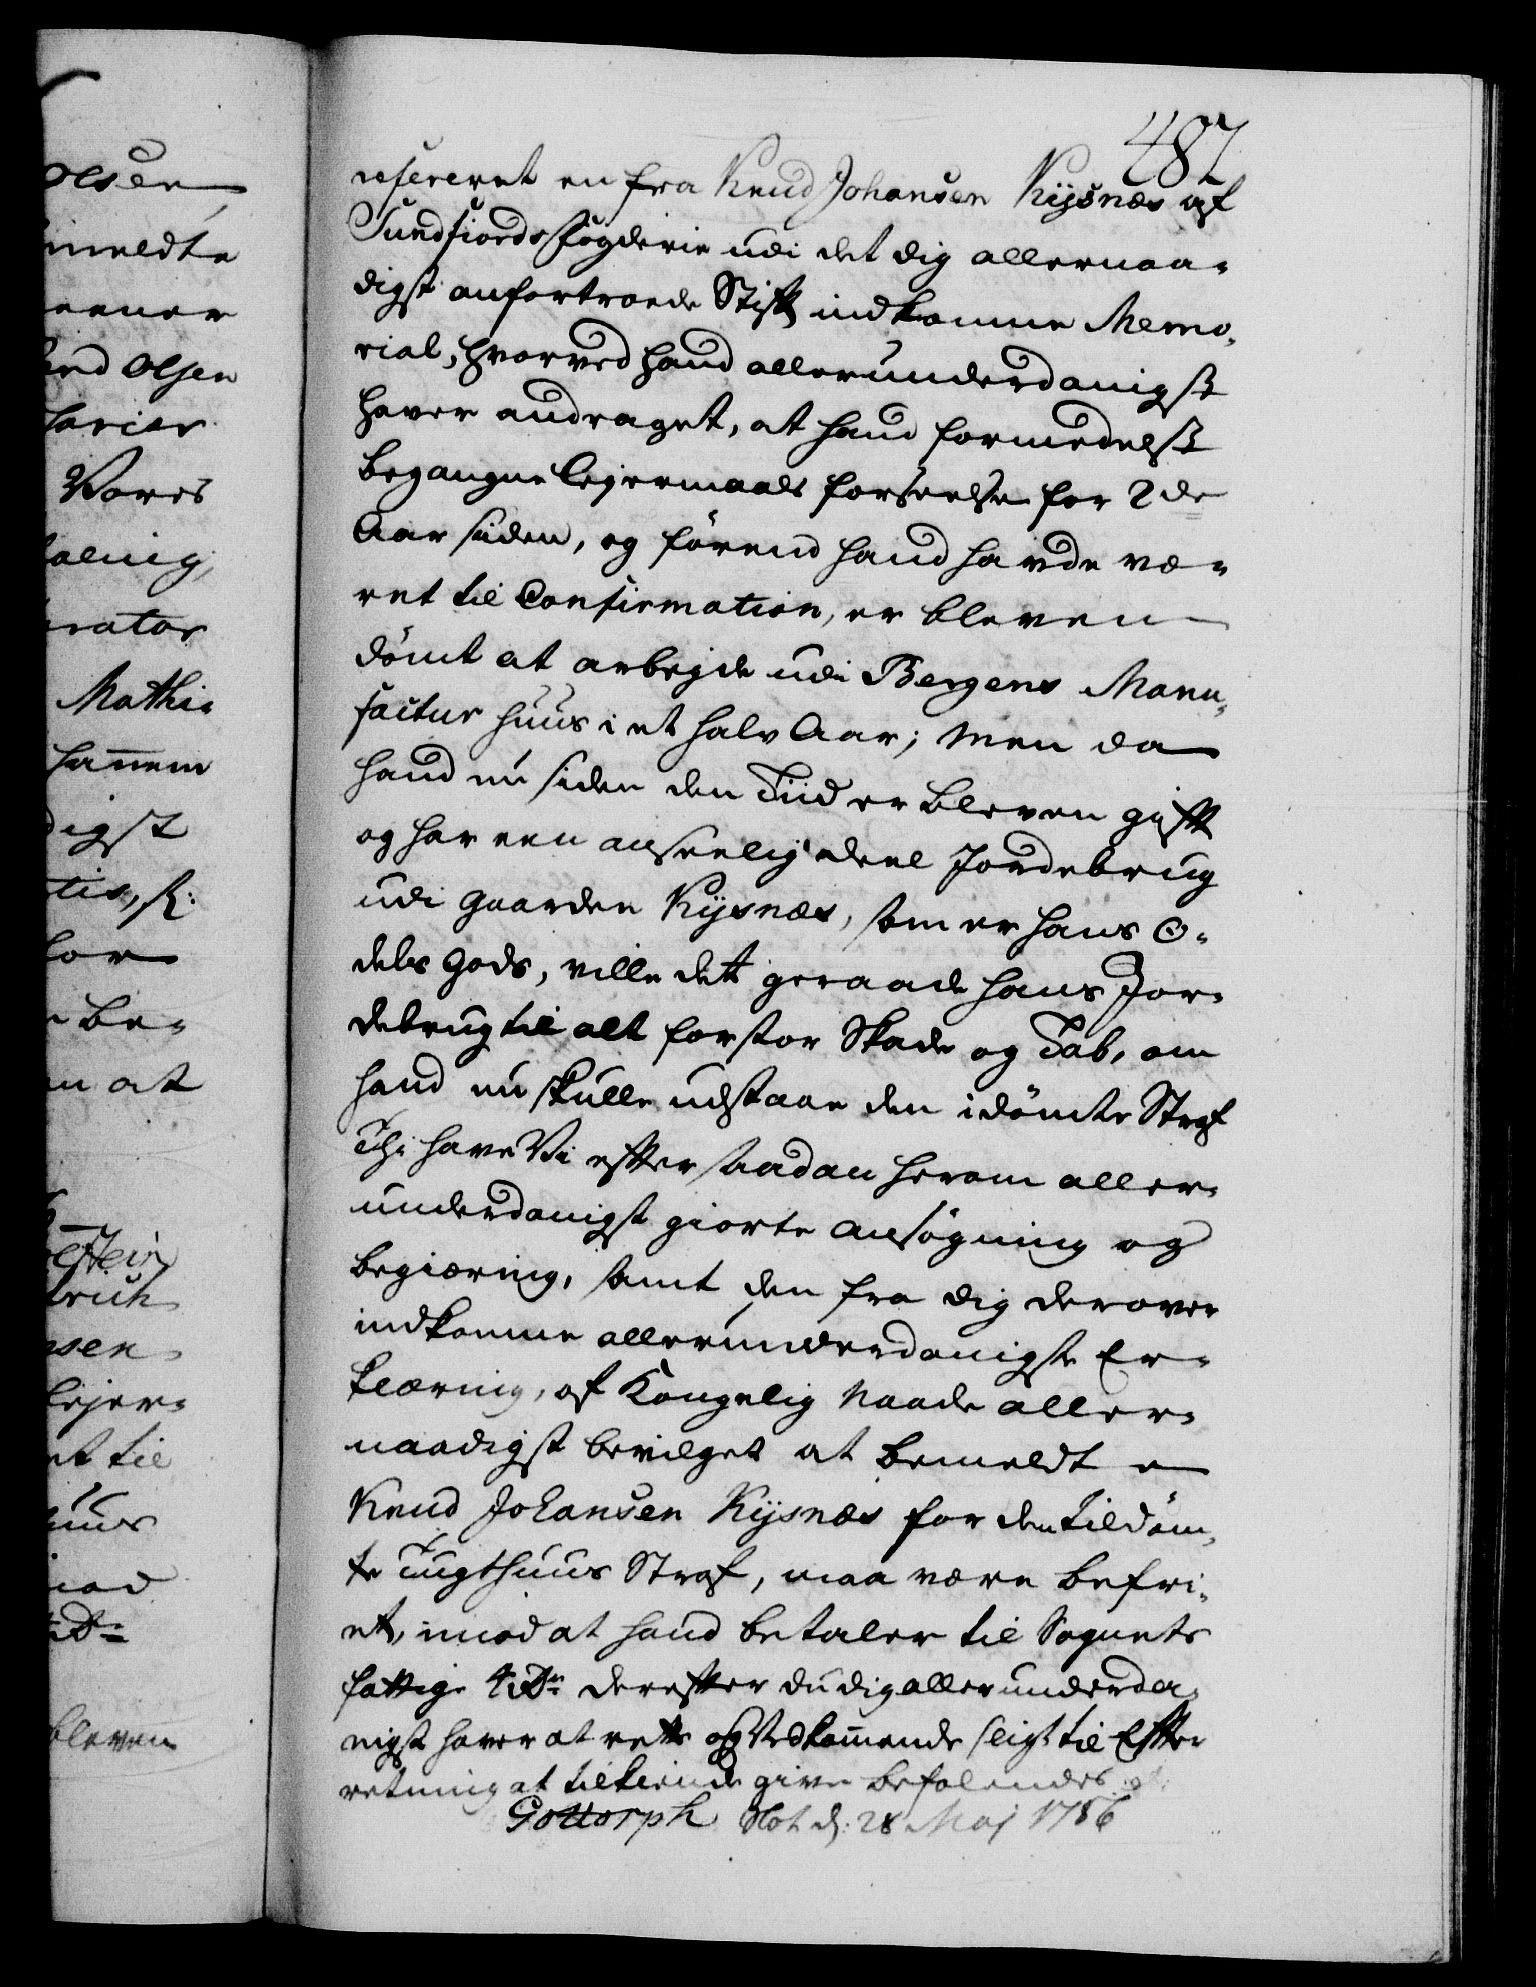 olsen
meldte
eener
end Olsen
harier
Vores
alnig,
rator
Mathi-
hannem
digst
tis, p:
for
be-
n at
lstein
druk
nsen
lejer-
et til
uus
iod
bleven
487
refereret en fra Knud Johansen Kysnæs af
Sundfiords Fogderie udi det dig allernaa-
digst anfortroede Stift indkomne Memo-
rial, hvorved hand allerunderdanigst
haver andraget, at hand formedelst
begangne Lejermaals forseelse for 2de
Aar siden, og förend hand havde væ-
ret til Confirmation, er bleven
dömt at arbejde udi Bergens Manu-
factur Huus i et halv Aar; Men da
hand nu siden den Tiid er bleven gift
og har een anseelig deel Jordebrug
udi Gaarden Kysnæs, som er hans O-
dels Gods, ville det geraade hans Jor-
debrug til alt for stor Skade og Tab, om
hand nu skulle udstaae den idömte Straf
Thi have Vi efter saadan herom aller-
underdanigst giorte Ansögning og
begiæring, samt den fra dig derover
indkomne allerunderdanigste Er-
klæring, af Kongelig Naade aller-
naadigst bevilget at bemeldte
Knud Johansen Kysnæs for den tildöm-
te Tugthuus Straf, maa være befri-
et, imod at hand betaler til Sognets
fattige 4 rdr derefter du dig allerunderda-
nigst haver at rette og Vedkommende sligt til Efter-
retning at tilkiende give befalendes
Gottorph Slot d: 28 Maj 1786